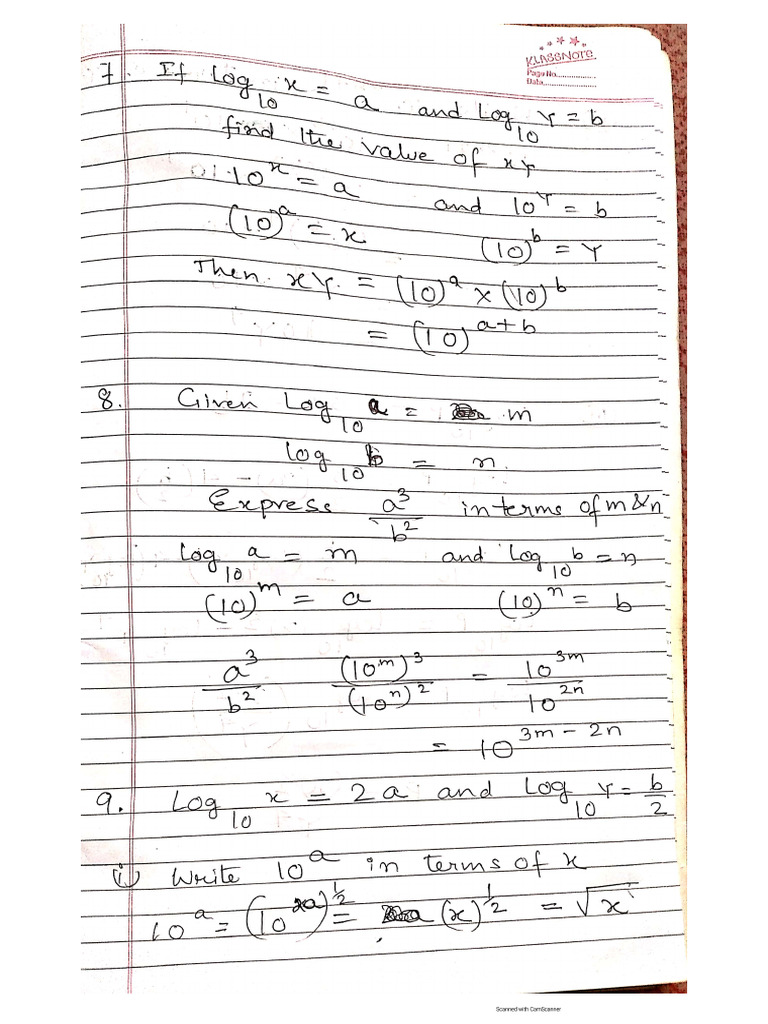 KLASSNOTE
Page No.
Date
7. If Log₁₀ x = a and Log₁₀ Y = b
find the value of xY
10ˣ = a and 10ʸ = b
(10)ᵃ = x (10)ᵇ = Y
Then xY = (10)ᵃ × (10)ᵇ
= (10)ᵃ⁺ᵇ
8. Given Log₁₀ a = m
log₁₀ b = n.
Express a³/b² in terms of m & n
Log₁₀ a = m and Log₁₀ b = n
(10)ᵐ = a (10)ⁿ = b
a³/b² (10ᵐ)³/(10ⁿ)² = 10³ᵐ/10²ⁿ
= 10³ᵐ⁻²ⁿ
9. Log₁₀ x = 2a and Log₁₀ Y = b/2
i) Write 10ᵃ in terms of x
10ᵃ = (10²ᵃ)^½ = (x)^½ = √x
Scanned with CamScanner